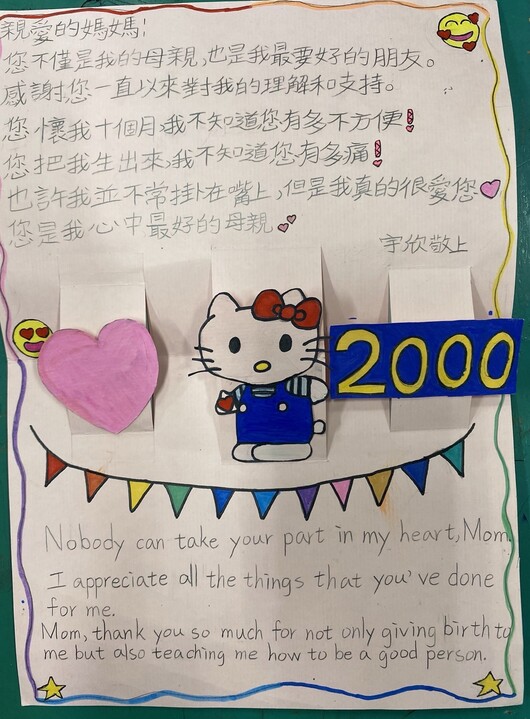 親愛的媽媽:
您不僅是我的母親,也是我最要好的朋友。
感謝您一直以來對我的理解和支持。
您懷我十個月,我不知道您有多不方便!
您把我生出來,我不知道您有多痛!
也許我並不常掛在嘴上,但是我真的很愛您
您是我心中最好的母親。
宇欣敬上
2000
Nobody can take your part in my heart, Mom.
I appreciate all the things that you've done
for me.
Mom, thank you so much for not only giving birth to
me but also teaching me how to be a good person.